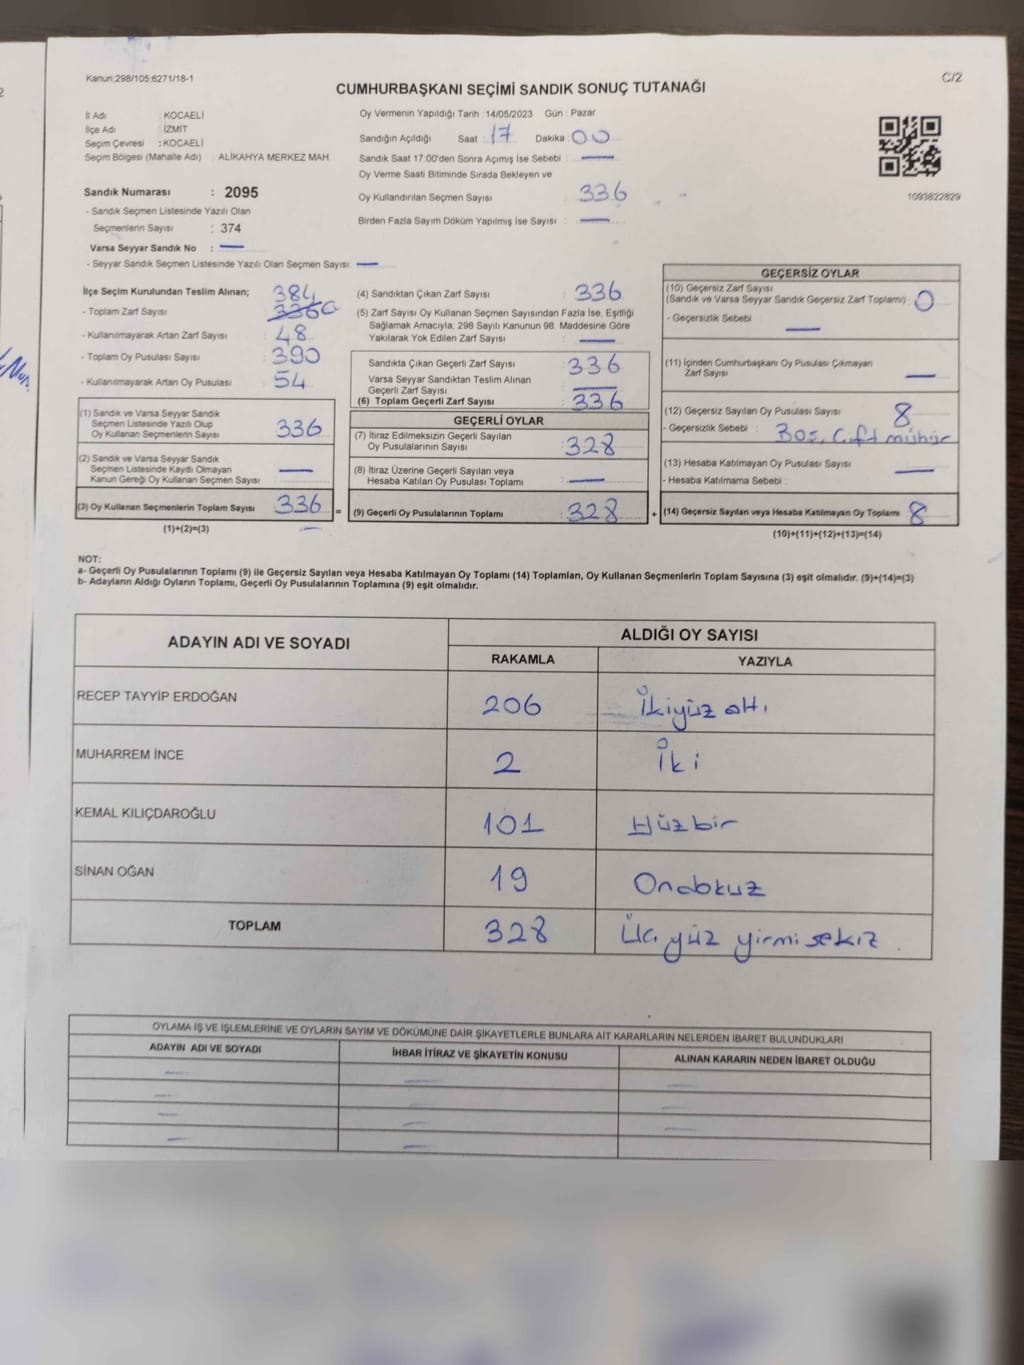 Kanun;298/105;6271/18-1
C/2
CUMHURBAŞKANI SEÇİMİ SANDIK SONUÇ TUTANAĞI
İl Adı : KOCAELİ
İlçe Adı : İZMİT
Seçim Çevresi : KOCAELİ
Seçim Bölgesi (Mahalle Adı) : ALİKAHYA MERKEZ MAH.
Sandık Numarası : 2095
- Sandık Seçmen Listesinde Yazılı Olan
Seçmenlerin Sayısı : 374
Varsa Seyyar Sandık No : —
- Seyyar Sandık Seçmen Listesinde Yazılı Olan Seçmen Sayısı: —
Oy Vermenin Yapıldığı Tarih :14/05/2023 Gün : Pazar
Sandığın Açıldığı Saat : 17 Dakika : 00
Sandık Saat 17:00'den Sonra Açımış İse Sebebi : —
Oy Verme Saati Bitiminde Sırada Bekleyen ve
Oy Kullandırılan Seçmen Sayısı : 336
Birden Fazla Sayım Döküm Yapılmış İse Sayısı : —
1093822829
İlçe Seçim Kurulundan Teslim Alınan; 384
- Toplam Zarf Sayısı : 336
- Kullanılmayarak Artan Zarf Sayısı : 48
- Toplam Oy Pusulası Sayısı : 390
- Kullanılmayarak Artan Oy Pusulası : 54
(1) Sandık ve Varsa Seyyar Sandık
Seçmen Listesinde Yazılı Olup
Oy Kullanan Seçmenlerin Sayısı : 336
(2) Sandık ve Varsa Seyyar Sandık
Seçmen Listesinde Kayıtlı Olmayan
Kanun Gereği Oy Kullanan Seçmen Sayısı : —
(3) Oy Kullanan Seçmenlerin Toplam Sayısı : 336 =
(1)+(2)=(3)
(4) Sandıktan Çıkan Zarf Sayısı : 336
(5) Zarf Sayısı Oy Kullanan Seçmen Sayısından Fazla İse, Eşitliği
Sağlamak Amacıyla, 298 Sayılı Kanunun 98. Maddesine Göre
Yakılarak Yok Edilen Zarf Sayısı : —
Sandıkta Çıkan Geçerli Zarf Sayısı : 336
Varsa Seyyar Sandıktan Teslim Alınan
Geçerli Zarf Sayısı : —
(6) Toplam Geçerli Zarf Sayısı : 336
GEÇERLİ OYLAR
(7) İtiraz Edilmeksizin Geçerli Sayılan
Oy Pusulalarının Sayısı : 328
(8) İtiraz Üzerine Geçerli Sayılan veya
Hesaba Katılan Oy Pusulası Toplamı : —
(9) Geçerli Oy Pusulalarının Toplamı : 328 +
GEÇERSİZ OYLAR
(10) Geçersiz Zarf Sayısı
(Sandık ve Varsa Seyyar Sandık Geçersiz Zarf Toplamı) : 0
- Geçersizlik Sebebi : —
(11) İçinden Cumhurbaşkanı Oy Pusulası Çıkmayan
Zarf Sayısı : —
(12) Geçersiz Sayılan Oy Pusulası Sayısı : 8
- Geçersizlik Sebebi : Boş, Çift mühür
(13) Hesaba Katılmayan Oy Pusulası Sayısı : —
- Hesaba Katılmama Sebebi :
(14) Geçersiz Sayılan veya Hesaba Katılmayan Oy Toplamı : 8
(10)+(11)+(12)+(13)=(14)
NOT:
a- Geçerli Oy Pusulalarının Toplamı (9) ile Geçersiz Sayılan veya Hesaba Katılmayan Oy Toplamı (14) Toplamları, Oy Kullanan Seçmenlerin Toplam Sayısına (3) eşit olmalıdır. (9)+(14)=(3)
b- Adayların Aldığı Oyların Toplamı, Geçerli Oy Pusulalarının Toplamına (9) eşit olmalıdır.
ADAYIN ADI VE SOYADI ALDIĞI OY SAYISI
RAKAMLA YAZIYLA
RECEP TAYYİP ERDOĞAN 206 İkiyüz altı
MUHARREM İNCE 2 İki
KEMAL KILIÇDAROĞLU 101 Yüzbir
SİNAN OĞAN 19 Ondokuz
TOPLAM 328 Üç yüz yirmi sekiz.
OYLAMA İŞ VE İŞLEMLERİNE VE OYLARIN SAYIM VE DÖKÜMÜNE DAİR ŞİKAYETLERLE BUNLARA AİT KARARLARIN NELERDEN İBARET BULUNDUKLARI
ADAYIN ADI VE SOYADI İHBAR İTİRAZ VE ŞİKAYETİN KONUSU ALINAN KARARIN NEDEN İBARET OLDUĞU